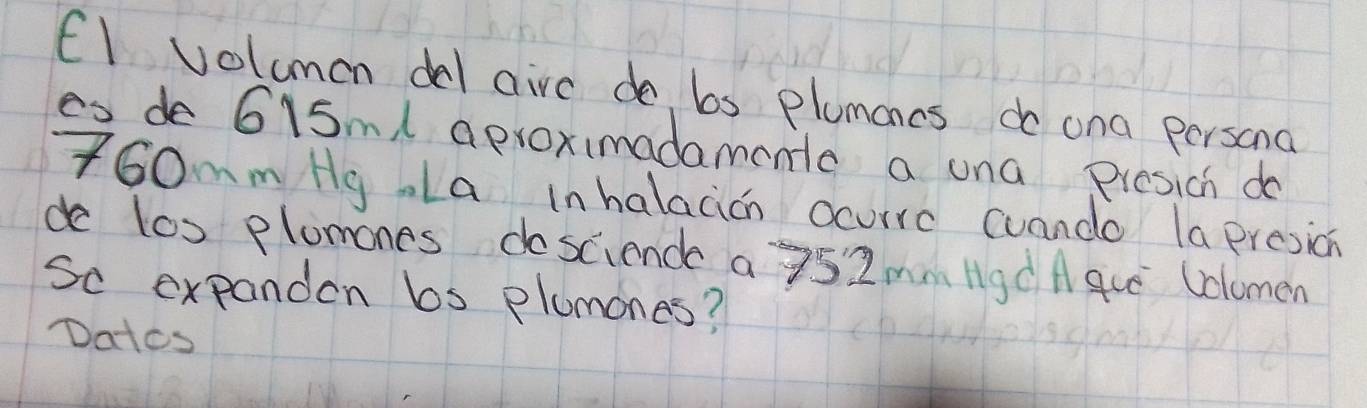 El volumen del aire de los Plumones de una Persona
es de 615ml aproximadamente a una Presión de
760mm Hg. La inhalación ocurre cuando la presión
de los plumones desciende a 752mm Hg ¿A qué Volumen
Se expanden los plumones?
Datos